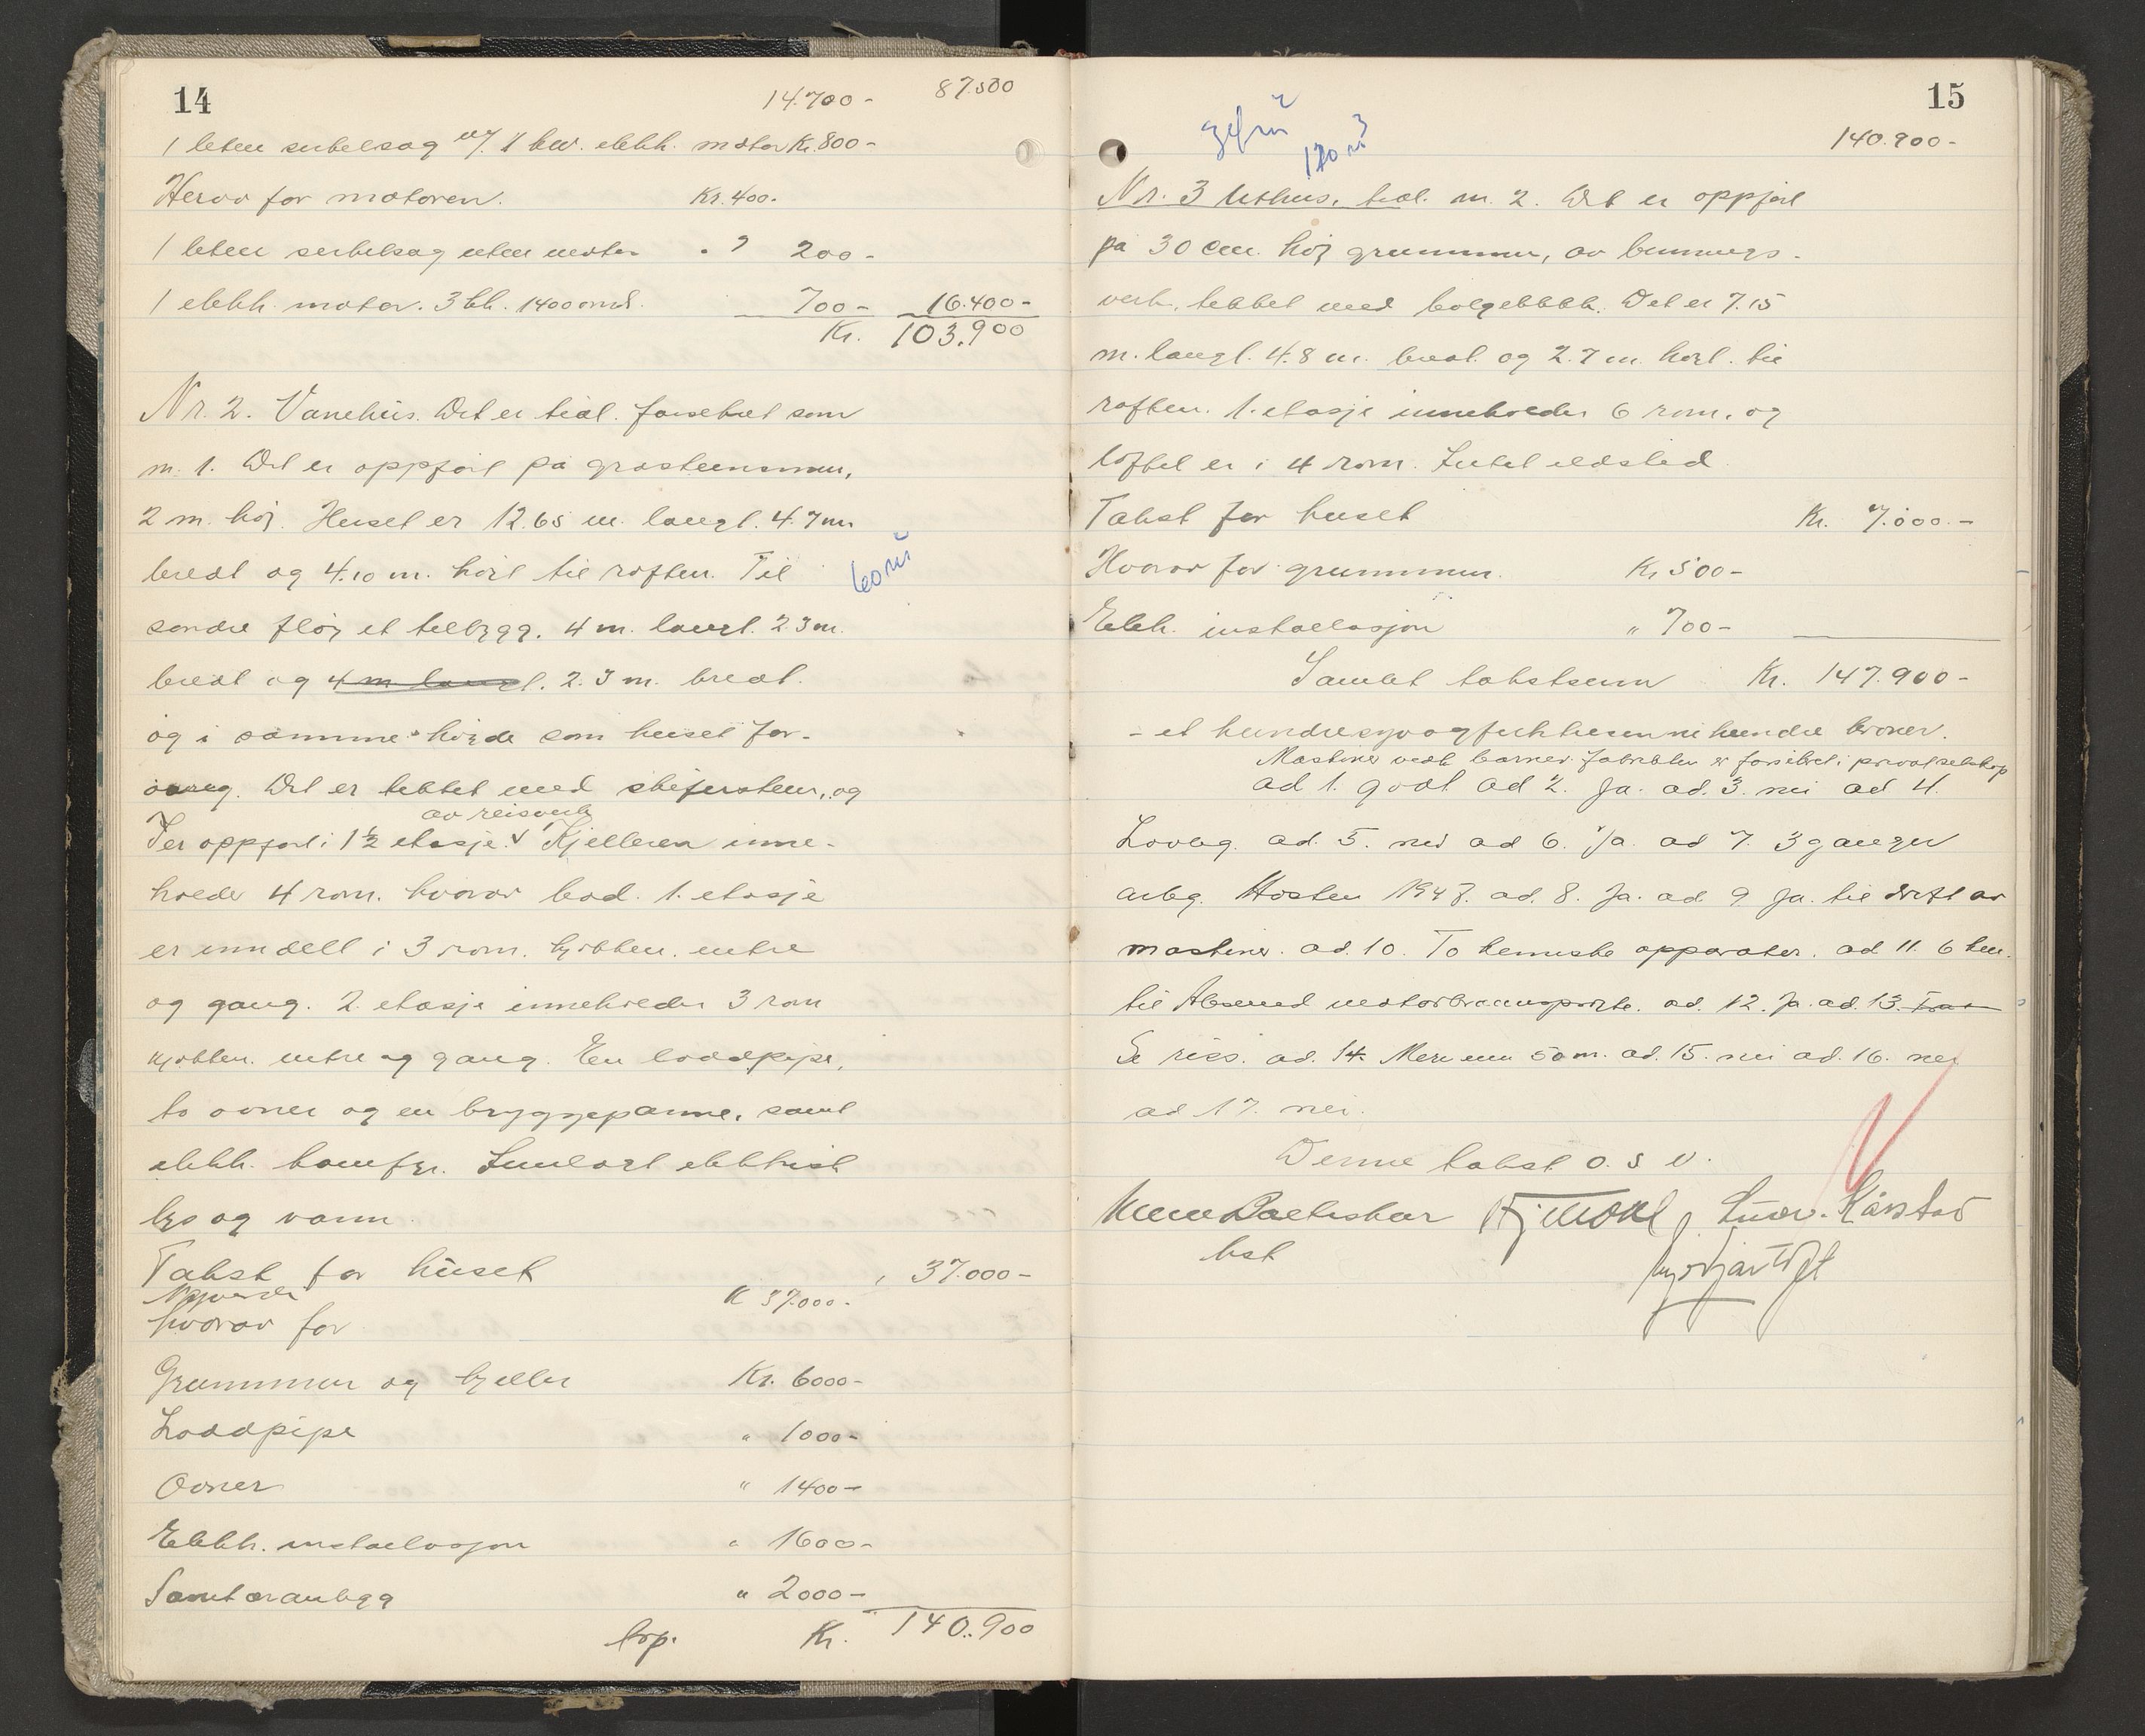 14
14.700- 87.500
1 liten sirkelsag m/. 1 kw. elektr. motor Kr. 800-
Herav for motoren. Kr. 400.
1 liten sirkelsag uten motor " 200-
1 elektr. motor. 3 hk. 1400 omd. 700- 16.400-
Kr. 103.900
Nr. 2. Vånehus. Det er tidl. forsikret som
nr. 1. Det er oppført på gråsteinsmur,
2 m. høi. Huset er 12.65 m. langt. 4.7 m
bredt og 4.10 m. høit til raften. Til
søndre fløi et tilbygg. 4 m. langt. 2.3 m.
bredt og 4 m langt. 2.3 m. bredt.
og i samme høide som huset for-
øvrig. Det er tekket med skiferstein, og
av reisverk
er oppført i 1½ etasje. Kjelleren inne-
holder 4 rom. hvorav bad. 1. etasje
er inndelt i 3 rom. kjøkken. entre
og gang. 2. etasje inneholder 3 rom
kjøkken. entre og gang. En loddpipe,
to ovner og en bryggepanne, samt
elektr. komfyr. Innlagt elektrisk
lys og vann.
Takst for huset " 37.000-
K 37.000-
hvorav for
Grunnmur og kjeller Kr. 6000-
Loddpipe " 1000-
Ovner " 1400-
Elektr. installasjon " 1600-
Sanitæranlegg " 2000-
trp. Kr. 140.900
60 m²
15
140.900-
120 m³
Nr. 3 Uthus, tidl. nr. 2. Det er oppført
på 30 cm. høi grunnmur, av binnings-
verk, tekket med bølgeblikk. Det er 7.15
m. langt. 4.8 m. bredt. og 2.7 m. høit. til
raften. 1. etasje inneholder 6 rom, og
loftet er i 4 rom. Intet ildsted
Takst for huset Kr. 7.000.-
Hvorav for grunnmur. Kr 500-
Elektr. installasjon " 700-
Samlet takstsum Kr. 147.900-
- et hundresyvogførtitusenni hundre kroner.
Maskiner vedk. fabrikken er forsikret i privatselskap
ad 1. godt ad 2. Ja. ad. 3. nei ad 4.
Lovlig. ad. 5. nei ad 6. Ja. ad 7. 3 ganger
årlig. Høsten 1948. ad. 8. Ja. ad 9 Ja. til drift av
maskiner. ad. 10. To kemiske apparater. ad 11. 6 km.
til Ålesund motorbrannsprøite. ad. 12. Ja. ad. 13.
Se riss. ad. 14. Mere enn 50 m. ad. 15. nei ad 16. nei
ad 17. nei.
Denne takst o. s v.